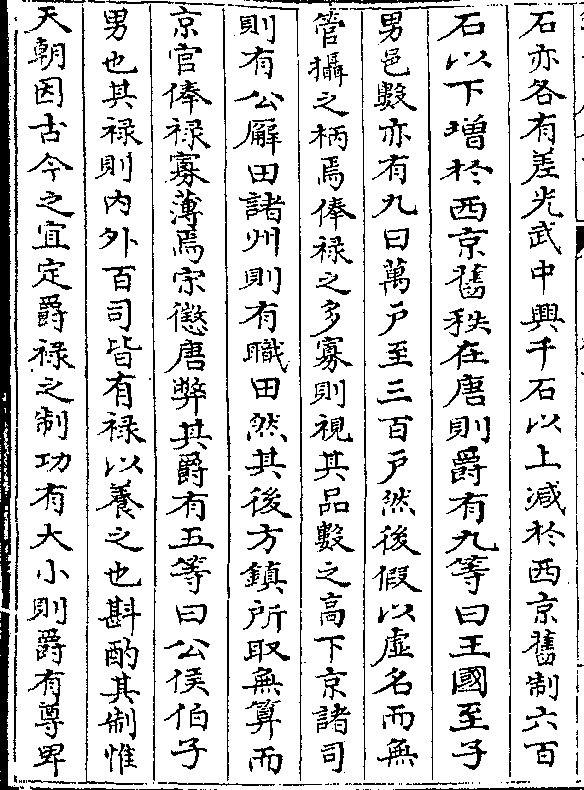 石亦各有差光武中興千石以上减於西京舊制六百
石以下增於西京舊秩在唐則爵有九等曰王國至子
男邑數亦有九曰萬戶至三百戶然後假以虛名而無
管攝之柄焉俸禄之多寡則視其品數之高下京諸司
則有公廨田諸州則有職田然其後方鎮所取無算而
京官俸禄寡薄焉宗懲唐弊其爵有五等曰公侯伯子
男也其禄則内外百司皆有禄以養之也斟酌其制惟
天朝因古今之宜定爵禄之制功有大小則爵有尊卑